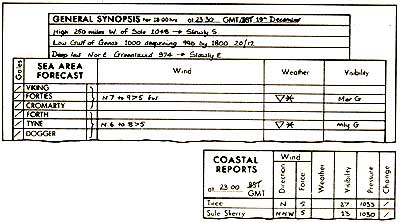 GENERAL SYNOPSIS for 23 00 hrs at 23 30 GMT/BST 19th December
High 250 miles W. of Sole 1048 → Slowly S
Low Gulf of Genoa 1000 deepening 998 by 1800 20/12
Deep low Nor E Greenland 974 → Slowly E
Gales SEA AREA FORECAST Wind Weather Visibility
VIKING
FORTIES N 7 to 9 > 5 Mor G
CROMARTY
FORTH
TYNE N 6 to 8 > 5 Mly G
DOGGER
COASTAL REPORTS
at 23 00 BST GMT
Wind
Direction Force Weather Visibility Pressure Change
Tiree N 5 27 1033 /
Sule Skerry NNW 5 23 1030 /